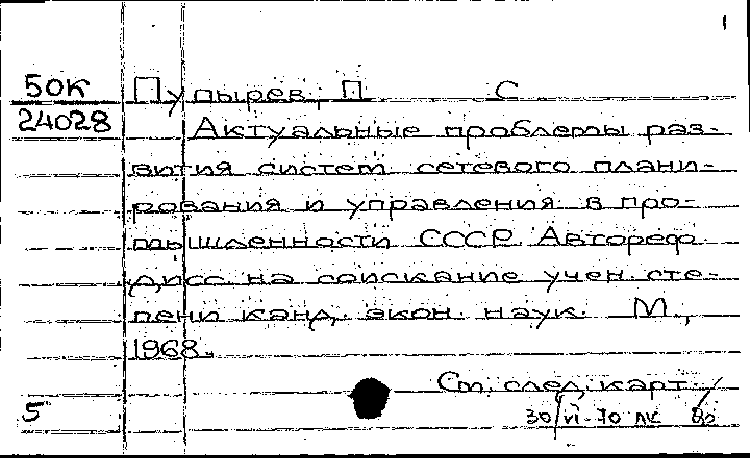 1
50К Пупырев, П С
24028 Актуальные проблемы раз-
вития систем сетевого плани-
рования и управления в про-
мышленности СССР. Автореф.
дисс. на соискание учен. сте-
пени канд. экон. наук. М.,
1968.
См. след. карт.
5 30/VI-70